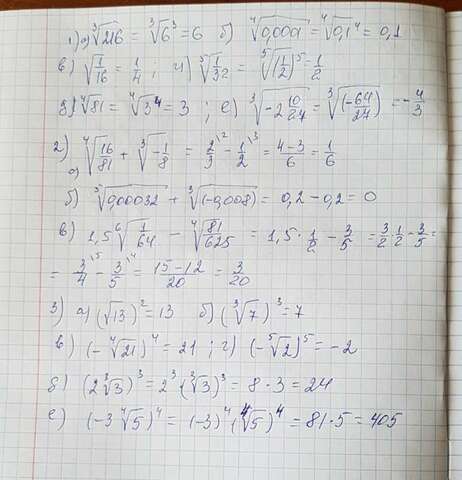 1) а) ∛216 = ∛6³ = 6  б) ∜0,0001 = ∜0,1⁴ = 0,1
в) √(1/16) = 1/4, г) ⁵√(1/32) = ⁵√(1/2)⁵ = 1/2
д) ∜81 = ∜3⁴ = 3 ; е) ∛(-2 10/27) = ∛(-64/27) = -4/3
2) а) ∜(16/81) + ∛(-1/8) = 2/3 \² - 1/2 \³ = (4-3)/6 = 1/6
б) ⁵√0,00032 + ∛(-0,008) = 0,2 - 0,2 = 0
в) 1,5 ⁶√(1/64) - ∜(81/625) = 1,5 · 1/2 - 3/5 = 3/2 · 1/2 - 3/5 =
= 3/4 \⁵ - 3/5 \⁴ = (15-12)/20 = 3/20
3) а) (√13)² = 13  б) (∛7)³ = 7
в) (-∜21)⁴ = 21 ; г) (-⁵√2)⁵ = -2
д) (2∛3)³ = 2³ · (∛3)³ = 8 · 3 = 24
е) (-3∜5)⁴ = (-3)⁴ (∜5)⁴ = 81 · 5 = 405